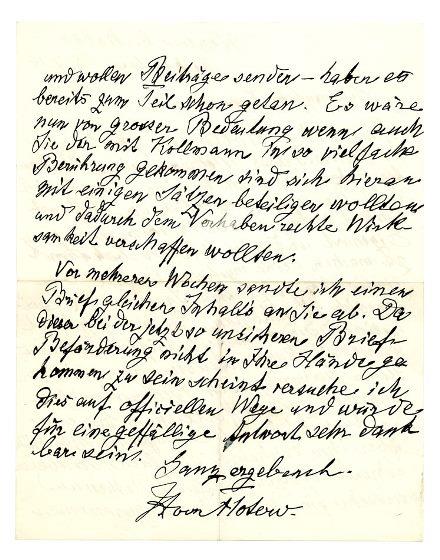 und wollen Beiträge senden – haben es
bereits zum Teil schon getan. Es wäre
nun von grosser Bedeutung wenn auch
Sie der mit Kollmann in so vielfache
Berührung gekommen sind sich hieran
mit einigen Sätzen beteiligen wollten
und dadurch dem Vorhaben rechte Wirk
samkeit verschaffen wollten.
Vor mehreren Wochen sandte ich einen
Brief gleichen Inhalts an Sie ab. Da
dieser bei der jetzt so unsicheren Brief-
Beförderung nicht in Ihre Hände ge
kommen zu sein scheint versuche ich
dies auf officiellen Wege und würde
für eine gefällige Antwort sehr dank
bar sein.
Ganz ergebenst.